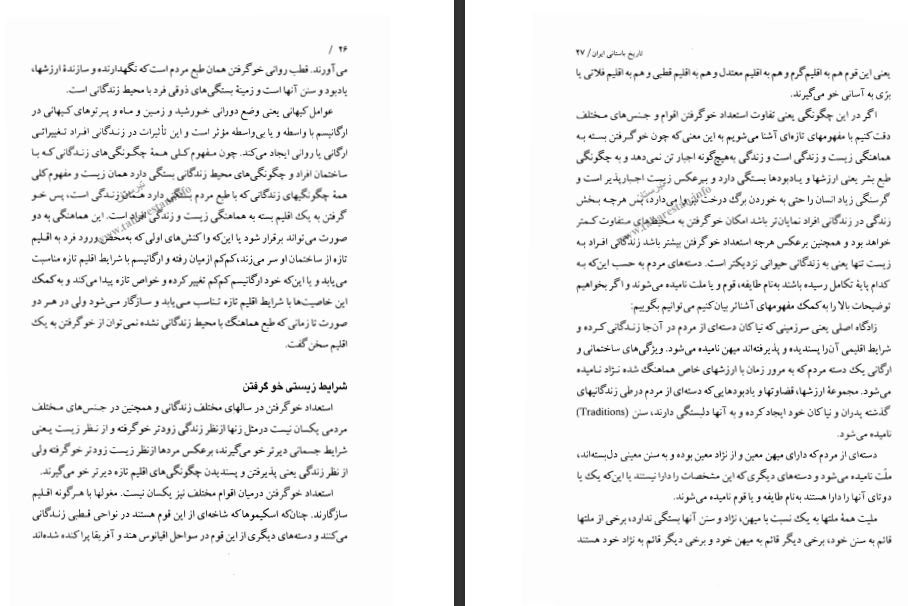 ۲۶ /
می‌آورند. قطب روانی خوگرفتن همان طبع مردم است که نگهدارنده و سازندۀ ارزشها،
یادبود و سنن آنها است و زمینۀ بستگی‌های ذوقی فرد با محیط زندگانی است.
عوامل کیهانی یعنی وضع دورانی خورشید و زمین و ماه و پرتوهای کیهانی در
ارگانیسم با واسطه و یا بی‌واسطه مؤثر است و این تأثیرات در زندگانی افراد تغییراتی
ارگانی یا روانی ایجاد می‌کند. چون مفهوم کلی همۀ چگونگی‌های زندگانی که با
ساختمان افراد و چگونگی‌های محیط زندگانی بستگی دارد همان زیست و مفهوم کلی
همۀ چگونگیهای زندگانی که با طبع مردم بستگی دارد همان زندگی است، پس خو
گرفتن به یک اقلیم بسته به هماهنگی زیست و زندگی افراد است. این هماهنگی به دو
صورت می‌تواند برقرار شود یا این‌که واکنش‌های اولی که به‌محض ورود فرد به اقلیم
تازه از ساختمان او سر می‌زند، کم‌کم ازمیان رفته و ارگانیسم با شرایط اقلیم تازه مناسبت
می‌یابد و یا این‌که خود ارگانیسم کم‌کم تغییر کرده و خواص تازه پیدا می‌کند و به‌کمک
این خاصیت‌ها با شرایط اقلیم تازه تناسب می‌یابد و سازگار می‌شود ولی در هر دو
صورت تا زمانی که طبع هماهنگ با محیط زندگانی نشده نمی‌توان از خوگرفتن به یک
اقلیم سخن گفت.
شرایط زیستی خو گرفتن
استعداد خوگرفتن در سالهای مختلف زندگانی و همچنین در جنس‌های مختلف
مردمی یکسان نیست درمثل زنها ازنظر زندگی زودتر خوگرفته و از نظر زیست یعنی
شرایط جسمانی دیرتر خو می‌گیرند، برعکس مردها ازنظر زیست زودتر خوگرفته ولی
از نظر زندگی یعنی پذیرفتن و پسندیدن چگونگی‌های اقلیم تازه دیرتر خو می‌گیرند.
استعداد خوگرفتن درمیان اقوام مختلف نیز یکسان نیست. مغولها با هرگونه اقلیم
سازگارند. چنان‌که اسکیموها که شاخه‌ای از این قوم هستند در نواحی قطبی زندگانی
می‌کنند و دسته‌های دیگری از این قوم در سواحل اقیانوس هند و آفریقا پراکنده شده‌اند
www.tabarestan.info
تبرستان
تاریخ باستانی ایران / ۲۷
یعنی این قوم هم به اقلیم گرم و هم به اقلیم معتدل و هم به اقلیم قطبی و هم به اقلیم فلاتی یا
برّی به آسانی خو می‌گیرند.
اگر در این چگونگی یعنی تفاوت استعداد خوگرفتن اقوام و جنس‌های مختلف
دقت کنیم با مفهومهای تازه‌ای آشنا می‌شویم به این معنی که چون خوگرفتن بسته به
هماهنگی زیست و زندگی است و زندگی به‌هیچ‌گونه اجبار تن نمی‌دهد و به چگونگی
طبع بشر یعنی ارزشها و یادبودها بستگی دارد و برعکس زیست اجبارپذیر است و
گرسنگی زیاد انسان را حتی به خوردن برگ درخت نیز وا می‌دارد، پس هرچه بخش
زندگی در زندگانی افراد نمایان‌تر باشد امکان خوگرفتن به محیط‌های متفاوت کمتر
خواهد بود و همچنین برعکس هرچه استعداد خوگرفتن بیشتر باشد زندگانی افراد به
زیست تنها یعنی به زندگانی حیوانی نزدیکتر است. دسته‌های مردم به حسب این‌که به
کدام پایۀ تکامل رسیده باشند به‌نام طایفه، قوم و یا ملت نامیده می‌شوند و اگر بخواهیم
توضیحات بالا را به‌کمک مفهومهای آشناتر بیان کنیم می‌توانیم بگوییم:
زادگاه اصلی یعنی سرزمینی که نیاکان دسته‌ای از مردم در آن‌جا زندگانی کرده و
شرایط اقلیمی آن را پسندیده و پذیرفته‌اند میهن نامیده می‌شود. ویژگی‌های ساختمانی و
ارگانی یک دسته مردم که به مرور زمان با ارزشهای خاص هماهنگ شده نژاد نامیده
می‌شود. مجموعۀ ارزشها، قضاوتها و یادبودهایی که دسته‌ای از مردم درطی زندگانیهای
گذشته پدران و نیاکان خود ایجاد کرده و به آنها دلبستگی دارند، سنن (Traditions)
نامیده می‌شود.
دسته‌ای از مردم که دارای میهن معین و از نژاد معین بوده و به سنن معینی دل‌بسته‌اند،
ملّت نامیده می‌شود و دسته‌های دیگری که این مشخصات را دارا نیستند یا این‌که یک یا
دوتای آنها را دارا هستند به‌نام طایفه و یا قوم نامیده می‌شوند.
ملیت همۀ ملتها به یک نسبت با میهن، نژاد و سنن آنها بستگی ندارد، برخی از ملتها
قائم به سنن خود، برخی دیگر قائم به میهن خود و برخی دیگر قائم به نژاد خود هستند
www.tabarestan.info
تبرستان